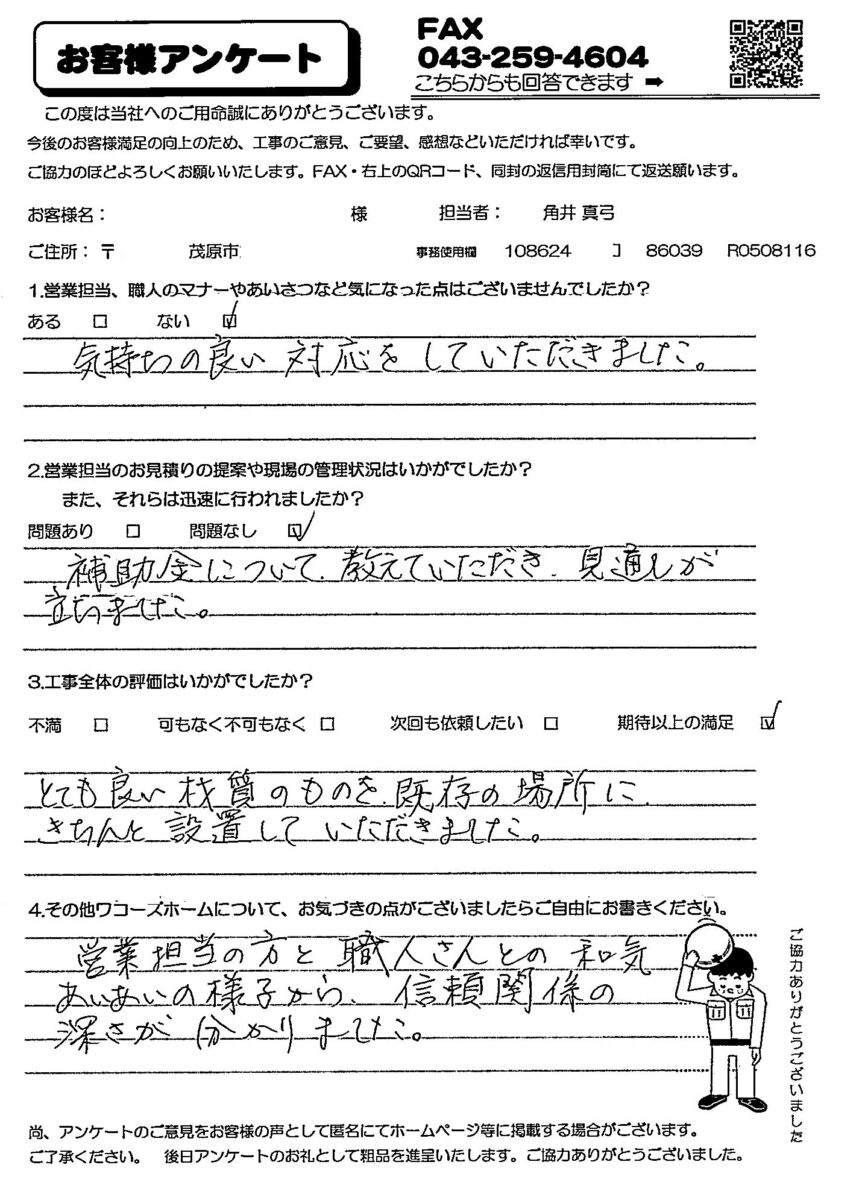 お客様アンケート
FAX
043-259-4604
こちらからも回答できます ➡
この度は当社へのご用命誠にありがとうございます。
今後のお客様満足の向上のため、工事のご意見、ご要望、感想などいただければ幸いです。
ご協力のほどよろしくお願いいたします。FAX・右上のQRコード、同封の返信用封筒にて返送願います。
お客様名： 様 担当者： 角井 真弓
ご住所：〒 茂原市 事務使用欄 108624 】 86039 R0508116
1.営業担当、職人のマナーやあいさつなど気になった点はございませんでしたか？
ある □ ない ☑
気持ちの良い対応をしていただきました。
2.営業担当のお見積りの提案や現場の管理状況はいかがでしたか？
また、それらは迅速に行われましたか？
問題あり □ 問題なし ☑
補助金について、教えていただき、見通しが
立ちました。
3.工事全体の評価はいかがでしたか？
不満 □ 可もなく不可もなく □ 次回も依頼したい □ 期待以上の満足 ☑
とても良い材質のものを、既存の場所に、
きちんと設置していただきました。
4.その他ワコーズホームについて、お気づきの点がございましたらご自由にお書きください。
営業担当の方と職人さんとの和気
あいあいの様子から、信頼関係の
深さが分かりました。
ご協力ありがとうございました
尚、アンケートのご意見をお客様の声として匿名にてホームページ等に掲載する場合がございます。
ご了承ください。 後日アンケートのお礼として粗品を進呈いたします。ご協力ありがとうございました。